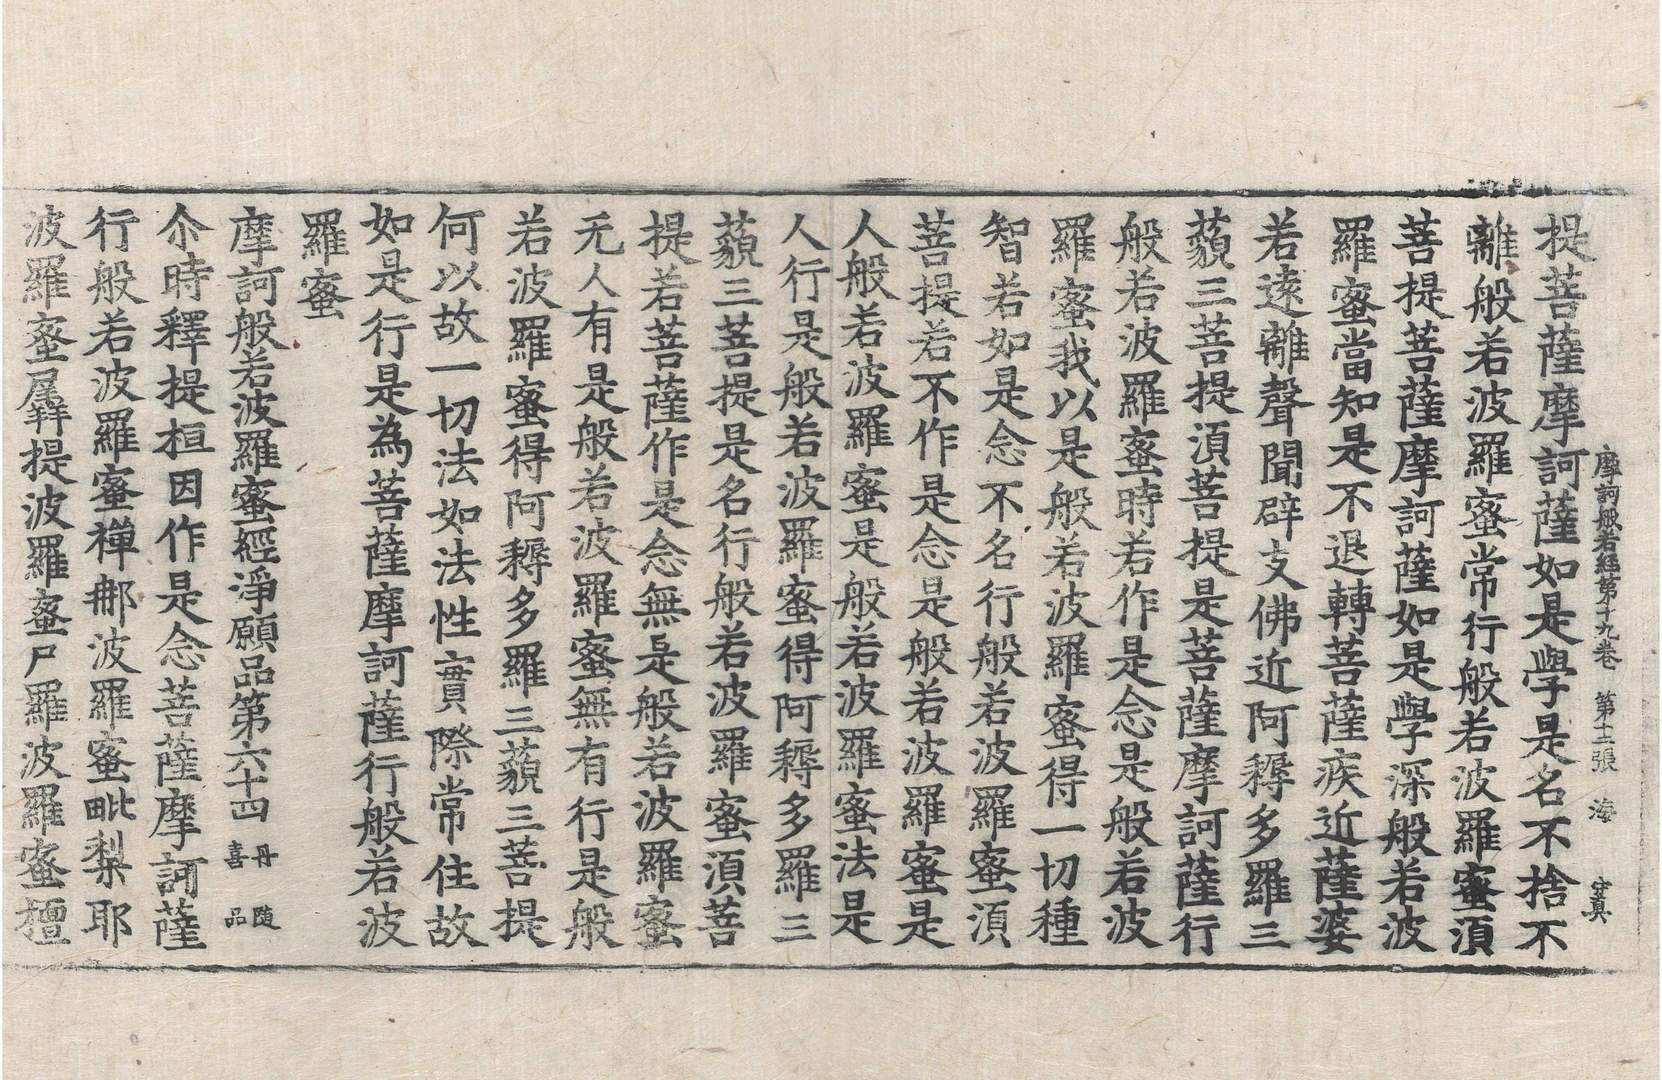 摩訶般若經第十九卷 第十二張 海 定真
提菩薩摩訶薩如是學是名不捨不
離般若波羅蜜常行般若波羅蜜湏
菩提菩薩摩訶薩如是學深般若波
羅蜜當知是不退轉菩薩疾近薩婆
若遠離聲聞辟支佛近阿耨多羅三
藐三菩提湏菩提是菩薩摩訶薩行
般若波羅蜜時若作是念是般若波
羅蜜我以是般若波羅蜜得一切種
智若如是念不名行般若波羅蜜湏
菩提若不作是念是般若波羅蜜是
人般若波羅蜜是般若波羅蜜法是
人行是般若波羅蜜得阿耨多羅三
藐三菩提是名行般若波羅蜜湏菩
提若菩薩作是念無是般若波羅蜜
无人有是般若波羅蜜無有行是般
若波羅蜜得阿耨多羅三藐三菩提
何以故一切法如法性實際常住故
如是行是為菩薩摩訶薩行般若波
羅蜜
摩訶般若波羅蜜經淨願品第六十四 丹隨喜品
尒時釋提桓因作是念菩薩摩訶薩
行般若波羅蜜禅那波羅蜜毗梨耶
波羅蜜羼提波羅蜜尸羅波羅蜜檀